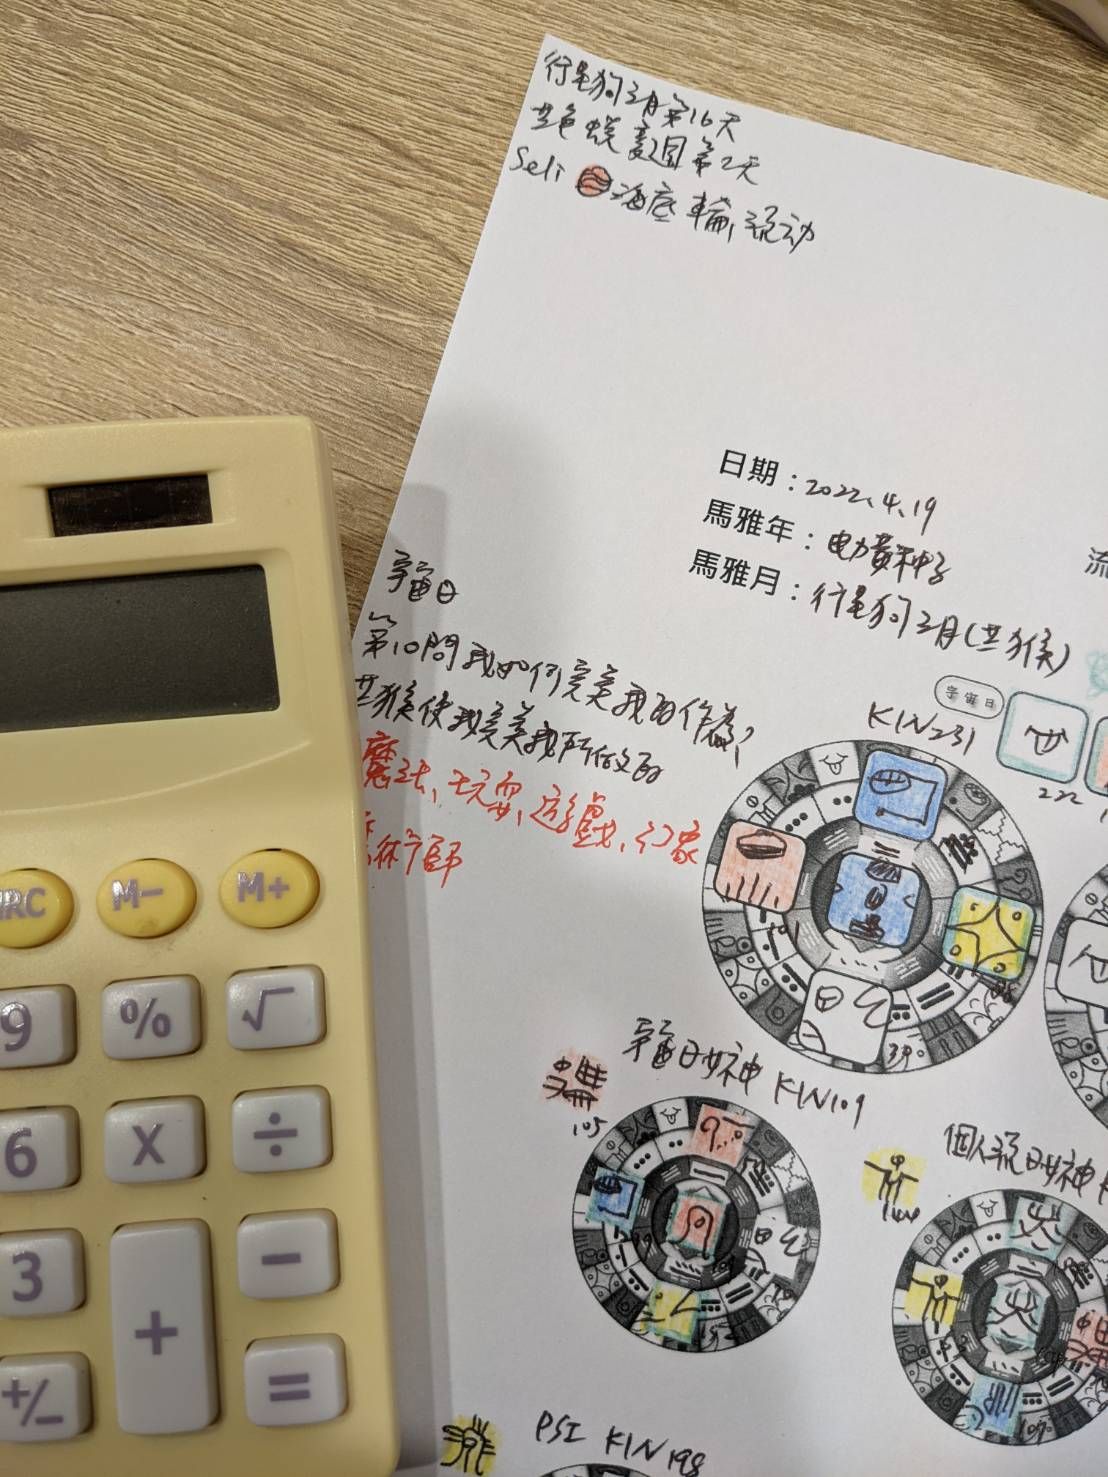 行星狗之月第16天
共色蛻變週第2天
Seli 海底輪,流动
日期：2022、4、19
馬雅年：电力黃种子
馬雅月：行星狗之月(共猴)
流
宇宙日
第10問 我如何完美我的作為?
共猴使我完美我所做的
魔法、玩耍、遊戲、幻象
術师
KIN231
宇宙日
222
101
390
宇宙日女神 KIN109
105
個人流日女神
144
PSI KIN198
MRC
M−
M+
9
%
√
6
X
÷
3
+
−
+/−
=